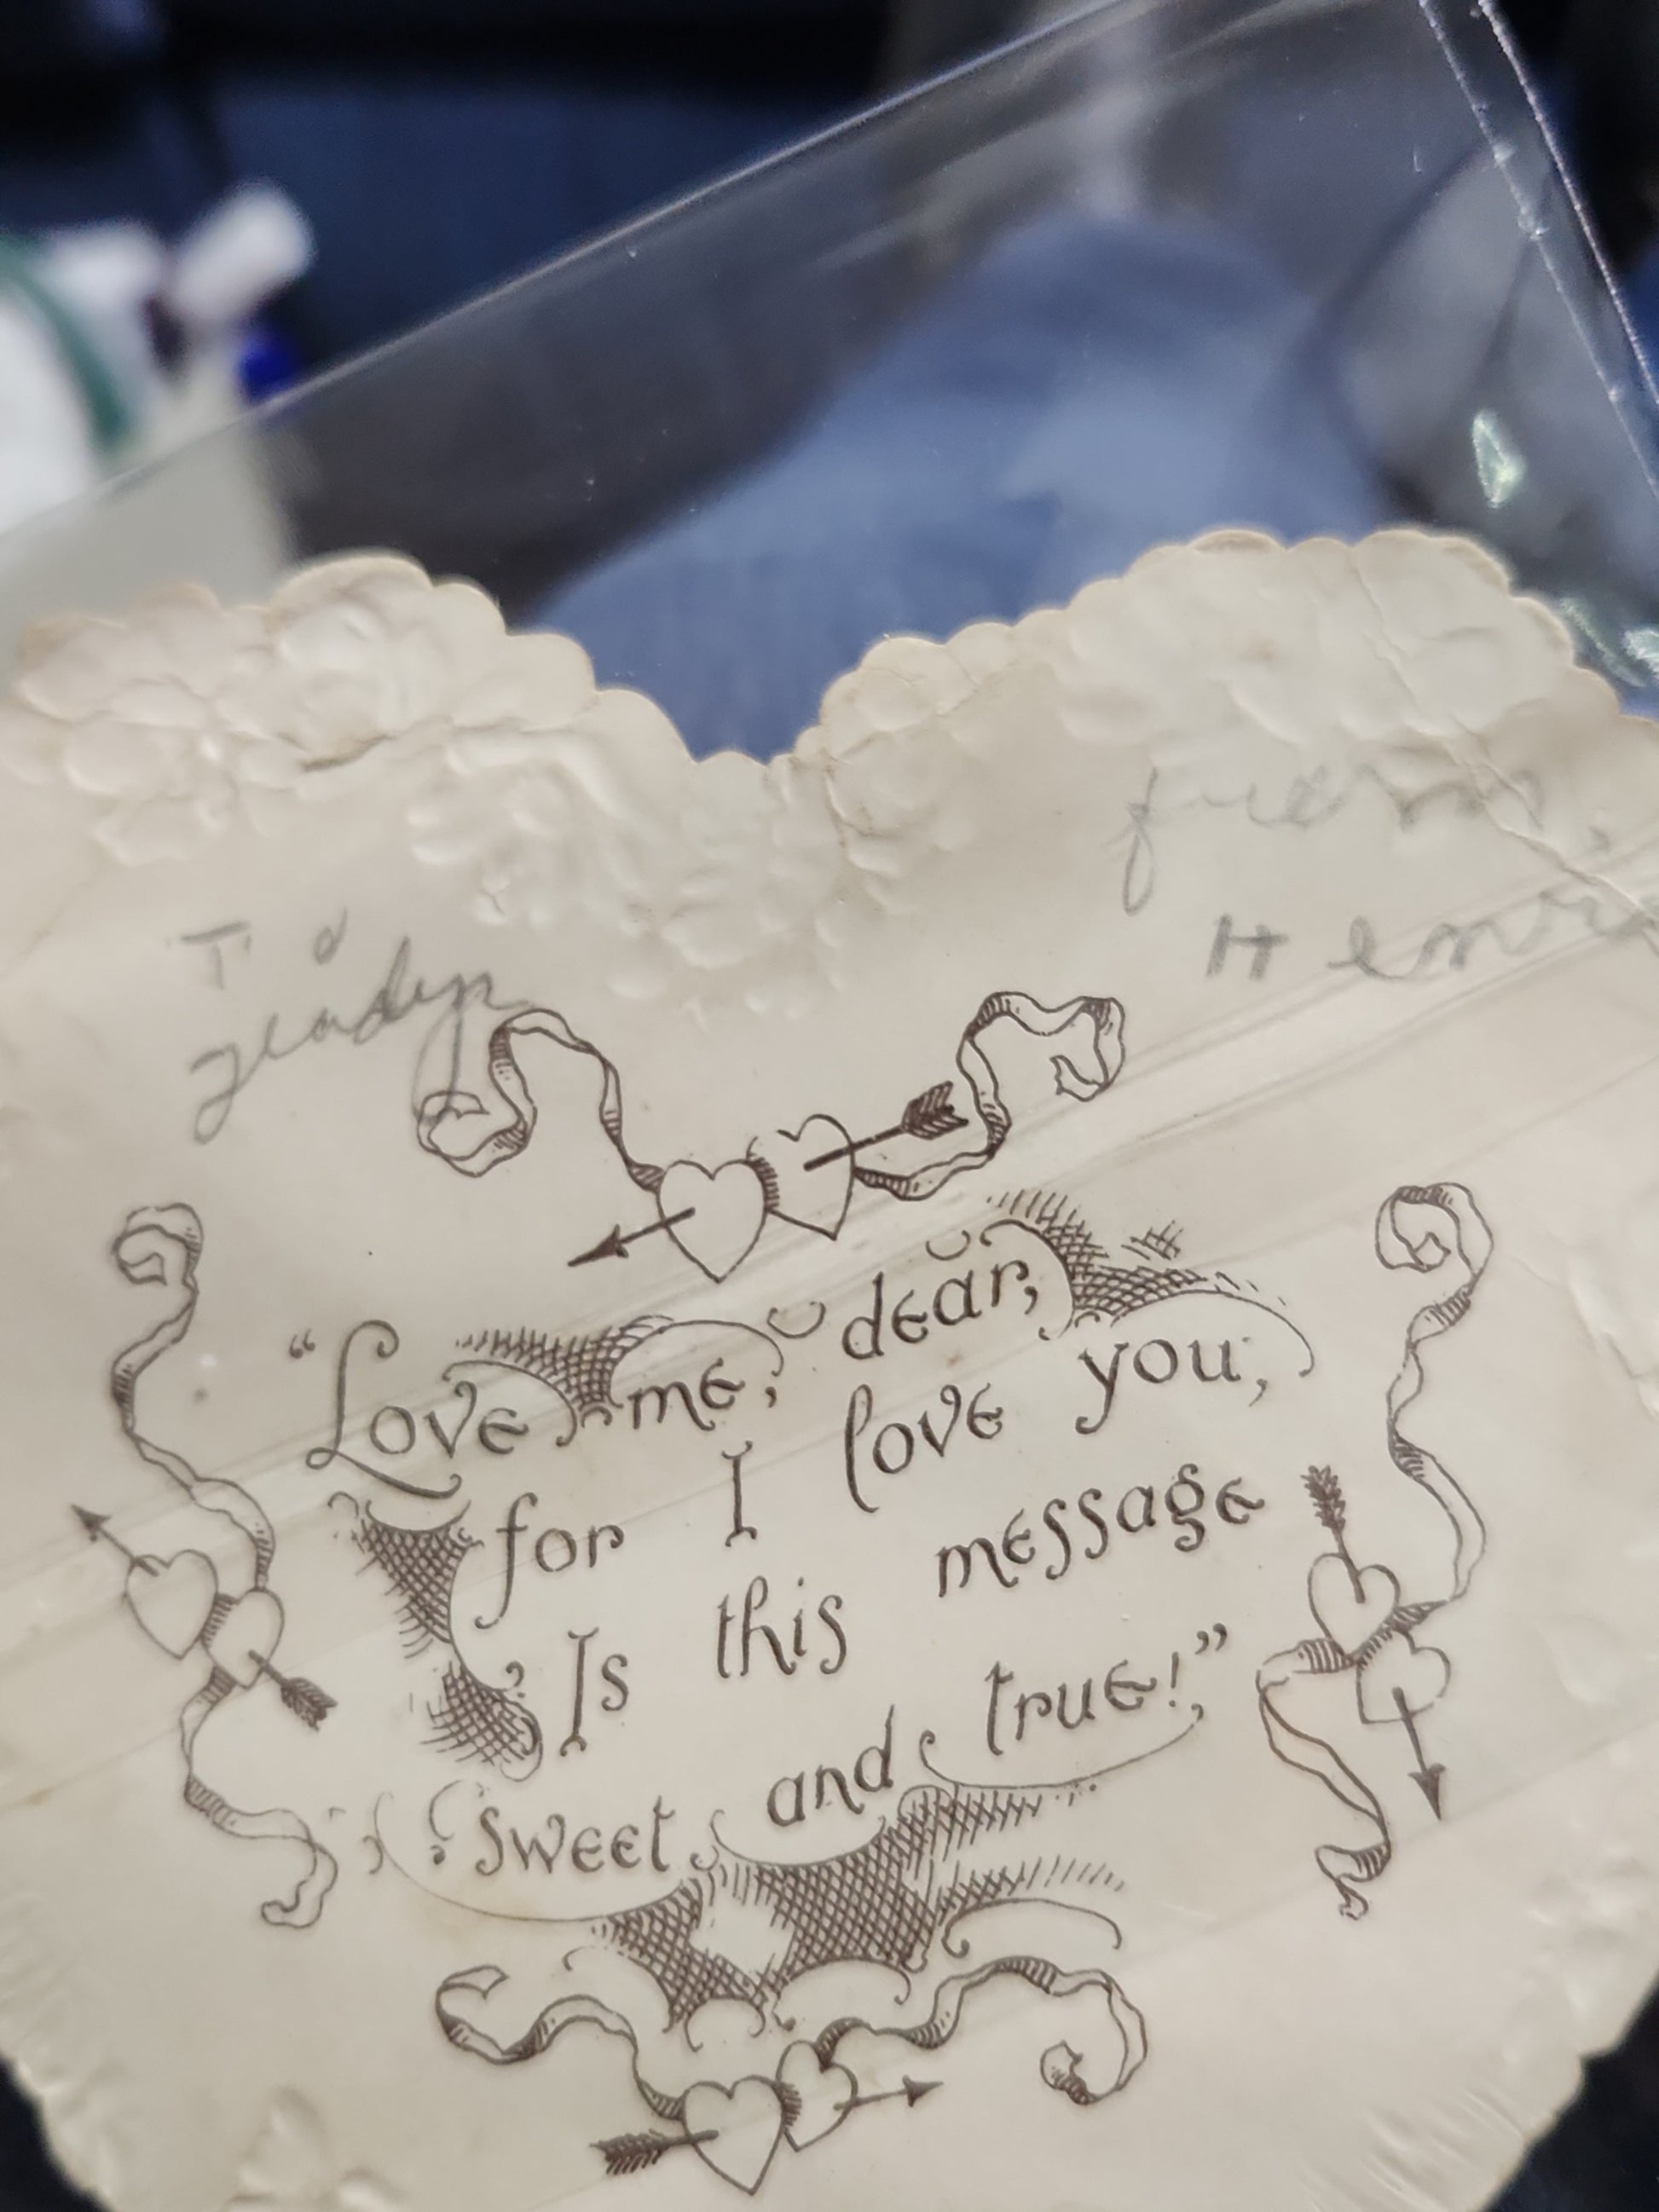 To
gladys
from
“Love me, dear,
for I love you,
Is this message
sweet and true!”